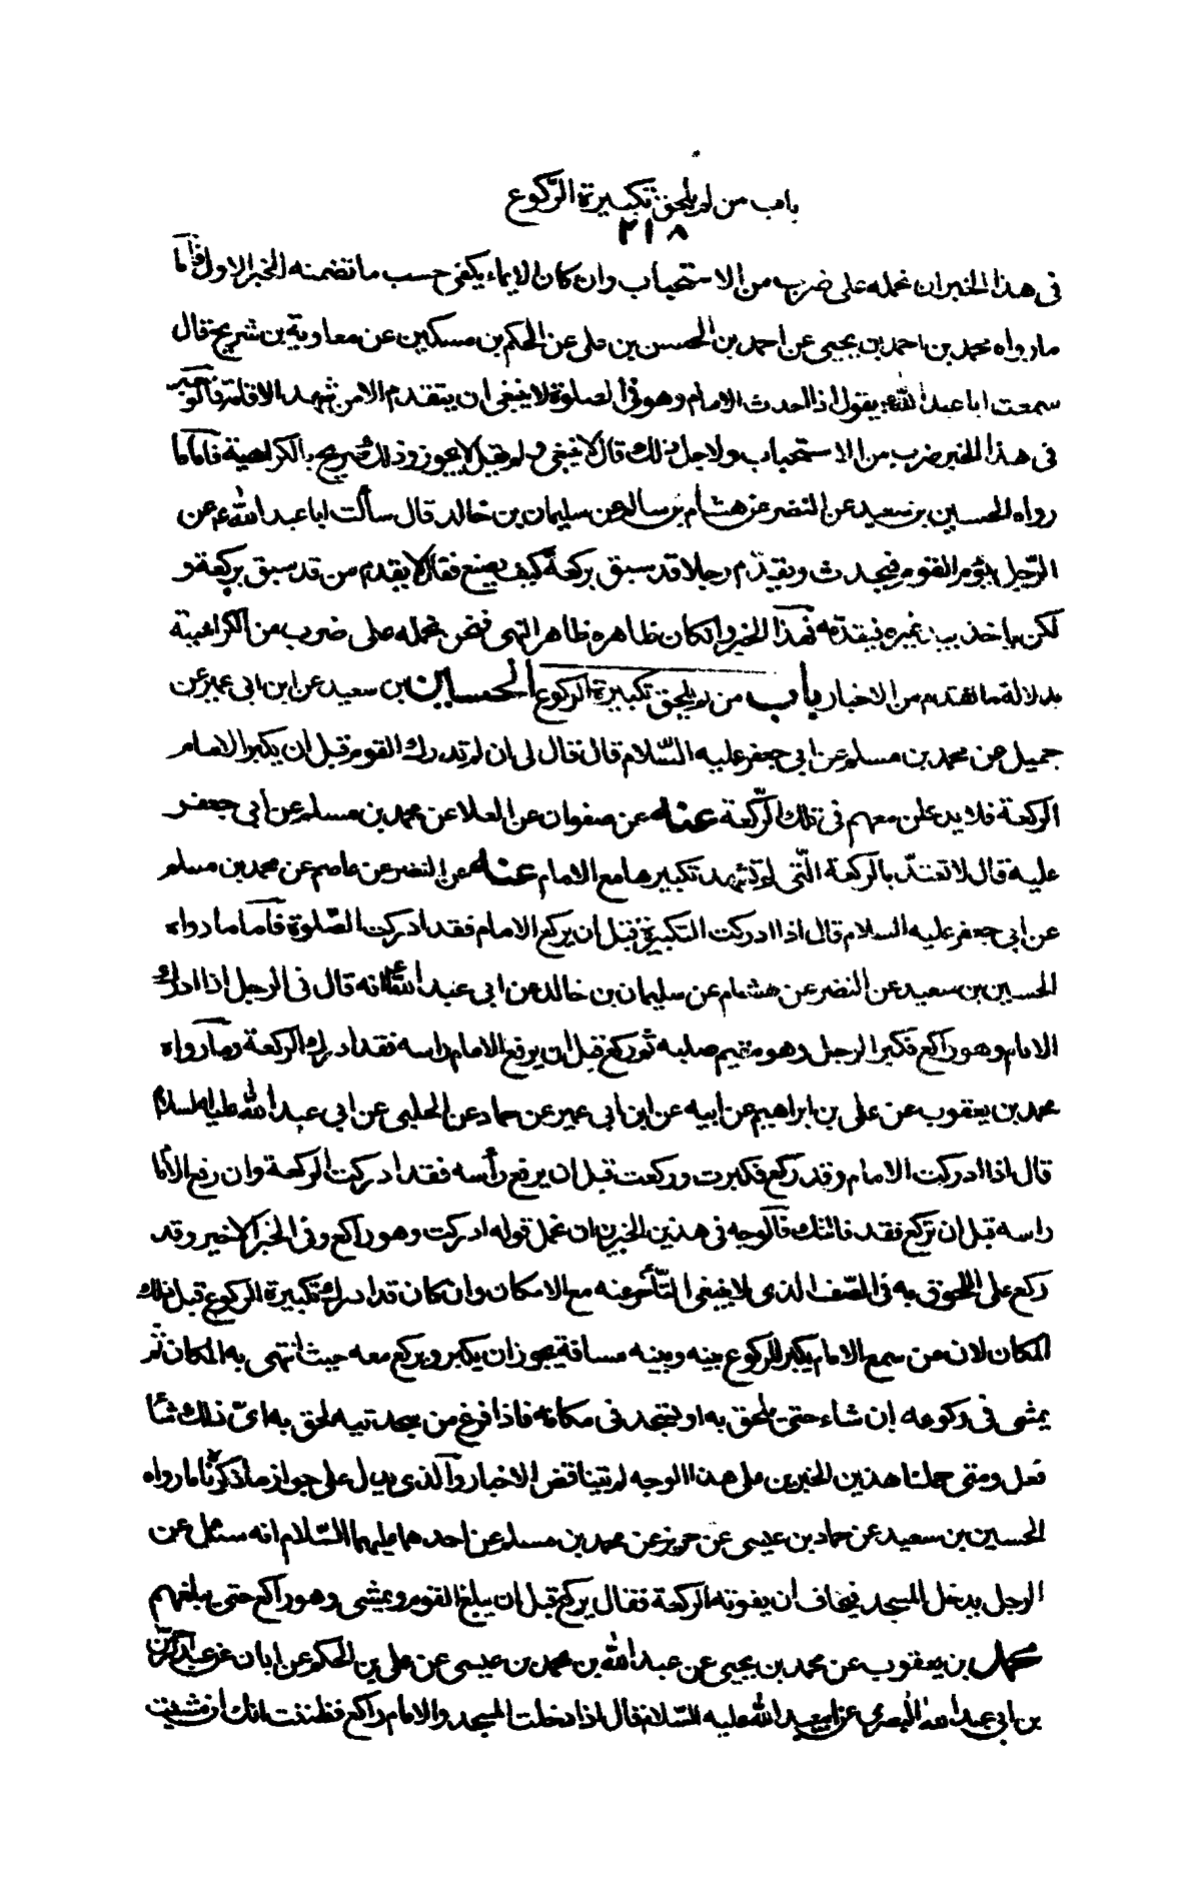 باب من لم يلحق تكبيرة الركوع
٢١٨
فى هذا الخبر ان نحمله على ضرب من الاستحباب وان كان الايماء يكفى حسب ما تضمنه الخبر الاول فاما
ما رواه محمد بن احمد بن يحيى عن احمد بن الحسن بن على عن الحكم بن مسكين عن معاوية بن شريح قال
سمعت ابا عبد الله ع يقول اذا احدث الامام وهو فى الصلوة لا ينبغى ان يتقدم الا من شهد الاقامة فالوجه
فى هذا الخبر ضرب من الاستحباب ولاجل ذلك قال لا ينبغى ولم يقل لا يجوز وذلك صريح بالكراهية فاما ما
رواه الحسين بن سعيد عن النضر عن هشام بن سالم عن سليمان بن خالد قال سألت ابا عبد الله ع عن
الرّجل يؤم القوم فيحدث ويقدّم رجلا قد سبق بركعة كيف يصنع فقال لا يقدم من قد سبق بركعة و
لكن ياخذ بيد غيره فيقدمه فهذا الخبر وان كان ظاهره ظاهر النهى فنحن نحمله على ضرب من الكراهية
بدلالة ما تقدم من الاخبار باب من لم يلحق تكبيرة الركوع الحسين بن سعيد عن ابن ابى عمير عن
جميل عن محمد بن مسلم عن ابى جعفر عليه السّلام قال قال لى ان لم تدرك القوم قبل ان يكبر الامام
الركعة فلا تدخلن معهم فى تلك الرّكعة عنه عن صفوان عن العلا عن محمد بن مسلم عن ابى جعفر
عليه قال لا تعتدّ بالركعة الّتى لم تشهد تكبيرها مع الامام عنه عن النضر عن عاصم عن محمد بن مسلم
عن ابى جعفر عليه السلام قال اذا ادركت التكبيرة قبل ان يركع الامام فقد ادركت الصّلوة فاما ما رواه
الحسين بن سعيد عن النضر عن هشام عن سليمان بن خالد عن ابى عبد الله ع انه قال فى الرجل اذا ادرك
الامام وهو راكع فكبر الرجل وهو مقيم صلبه ثم ركع قبل ان يرفع الامام راسه فقد ادرك الركعة وما رواه
محمد بن يعقوب عن على بن ابراهيم عن ابيه عن ابن ابى عمير عن حماد عن الحلبى عن ابى عبد الله عليه السلام
قال اذا ادركت الامام وقد ركع فكبرت وركعت قبل ان يرفع رأسه فقد ادركت الركعة وان رفع الاما
راسه قبل ان تركع فقد فاتتك فالوجه فى هذين الخبرين ان نحمل قوله ادركت وهو راكع وفى الخبر الاخير وقد
ركع على اللحوق به فى الصّف الذى لا ينبغى التّأخر عنه مع الامكان وان كان قد ادرك تكبيرة الركوع قبل ذلك
المكان لان من سمع الامام يكبر للركوع بينه وبينه مسافة يجوز ان يكبر ويركع معه حيث انتهى به المكان ثم
يمشى فى ركوعه إن شاء حتى يلحق به او يسجد فى مكانه فاذا فرغ من سجدتيه لحق به اىّ ذلك شاء
فعل ومتى حملنا هذين الخبرين على هذا الوجه لم يتناقض الاخبار والذى يدل على جواز ما ذكرناه ما رواه
الحسين بن سعيد عن حماد بن عيسى عن حريز عن محمد بن مسلم عن احدهما عليهما السّلام انه سئل عن
الرجل يدخل المسجد فيخاف ان يفوته الركعة فقال يركع قبل ان يبلغ القوم ويمشى وهو راكع حتى يبلغهم
محمد بن يعقوب عن محمد بن يحيى عن عبد الله بن محمد بن عيسى عن على بن الحكم عن ابان عن عبد الرحمن
بن ابى عبد الله البصرى عن ابى عبد الله عليه السّلام قال اذا دخلت المسجد والامام راكع فظننت انك ان مشيت